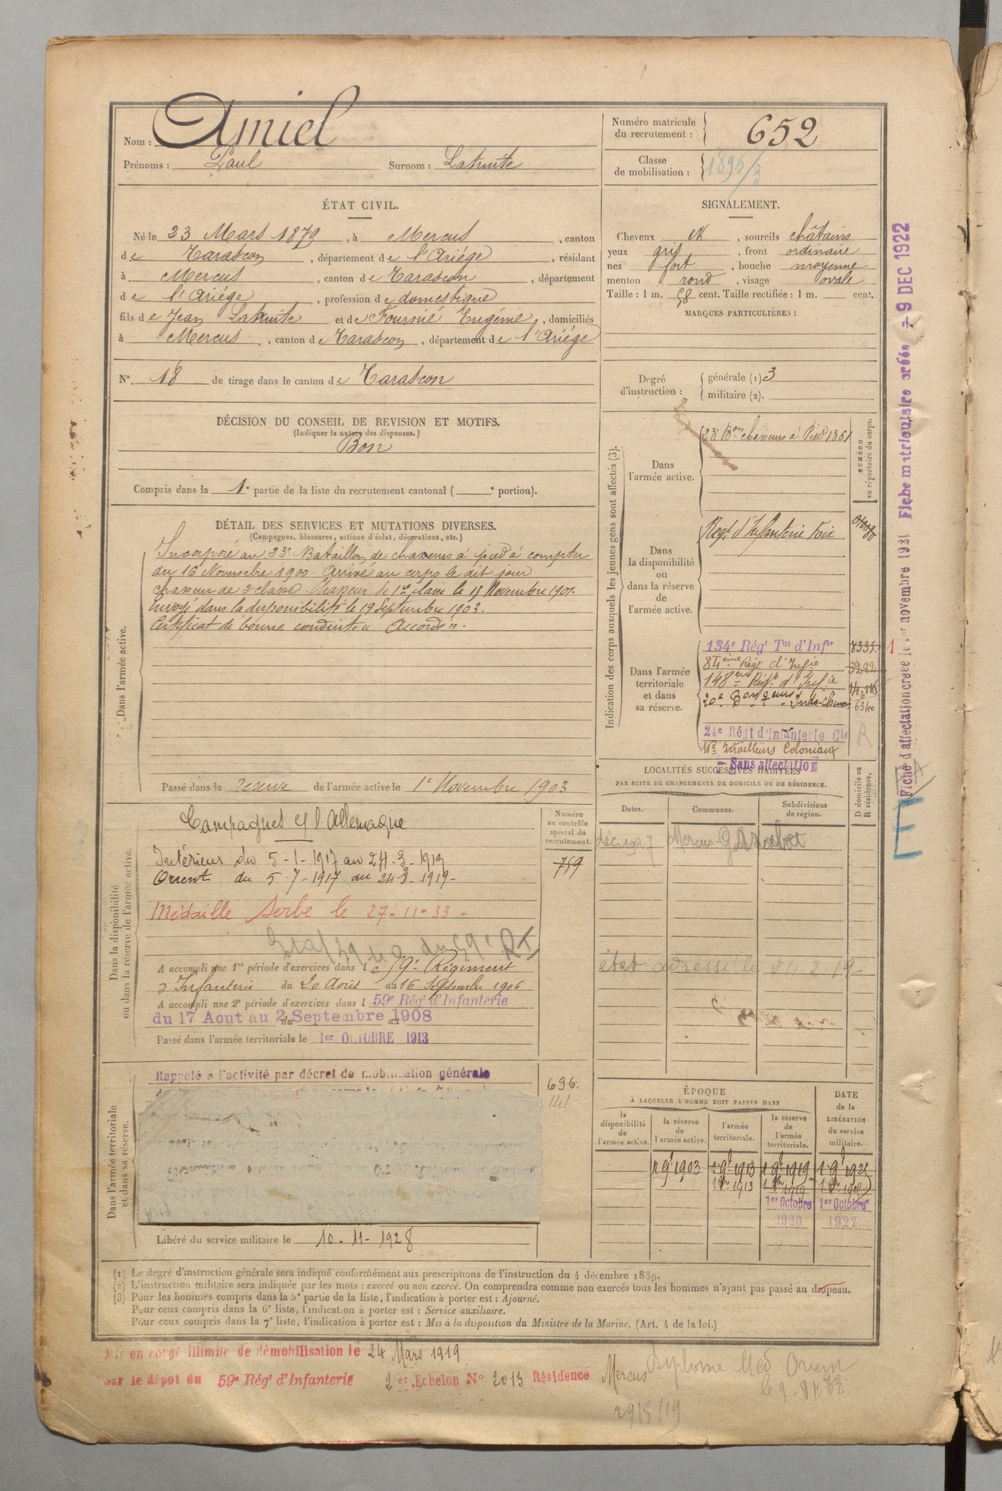 Nom : Amiel
Prénoms : Paul Surnom : Latruite
Numéro matricule du recrutement : 652
Classe de mobilisation : 1895/3
ÉTAT CIVIL.
Né le 23 Mars 1879, à Mercus, canton
de Tarascon, département de l'Ariège, résidant
à Mercus, canton de Tarascon, département
de l'Ariège, profession de domestique
fils de Jean Latruite et de Fournié Eugénie, domiciliés
à Mercus, canton de Tarascon, département de l'Ariège
N° 18 de tirage dans le canton de Tarascon
SIGNALEMENT.
Cheveux et, sourcils châtains
yeux gris, front ordinaire
nez fort, bouche moyenne
menton rond, visage ovale
Taille : 1 m. 58 cent. Taille rectifiée : 1 m. cent.
MARQUES PARTICULIÈRES :
Degré d'instruction : générale (1) 3
militaire (2).
DÉCISION DU CONSEIL DE REVISION ET MOTIFS.
(Indiquer la nature des dispenses.)
Bon
Compris dans la 1e partie de la liste du recrutement cantonal ( e portion).
DÉTAIL DES SERVICES ET MUTATIONS DIVERSES.
(Campagnes, blessures, actions d'éclat, décorations, etc.)
Dans l'armée active.
Incorporé au 23e Bataillon de chasseurs à pied à compter
du 16 Novembre 1900. Arrivé au corps le dit jour
chasseur de 2e classe. Chasseur de 1re classe le 11 Novembre 1901.
Envoyé dans la disponibilité le 19 Septembre 1903.
Certificat de bonne conduite "Accordé".
Passé dans la réserve de l'armée active le 1er Novembre 1903
Indication des corps auxquels les jeunes gens sont affectés (3).
NUMÉRO au répertoire du corps.
Dans l'armée active.
23e Bon chasseurs à Pied 1351
Dans la disponibilité ou dans la réserve de l'armée active.
Régt d'Infanterie Foix
Dans l'armée territoriale et dans sa réserve.
134e Régt Tal d'Infie
84ème Régt d'Infie
148e Régt d'Infie
24e Régt d'Infanterie Cle
Tirailleurs Coloniaux
Sans affectation
LOCALITÉS SUCCESSIVES HABITÉES
PAR SUITE DE CHANGEMENTS DE DOMICILE OU DE RÉSIDENCE.
Dates. Communes. Subdivisions de région. D domicile ou R résidence.
Mercus
Dans la disponibilité ou dans la réserve de l'armée active.
Numéro au contrôle spécial du recrutement.
759
Campagnes c/ l'Allemagne
Intérieur du 5-1-1917 au 24-3-1919
Orient du 5-7-1917 au 24-3-1919-
Médaille Serbe le 27-11-33-
A accompli une 1re période d'exercices dans le 59e Régiment
d'Infanterie du 20 Août au 16 Septembre 1906
A accompli une 2e période d'exercices dans l 59e Régt d'Infanterie
du 17 Aout au 2 Septembre 1908
Passé dans l'armée territoriale le 1er OCTOBRE 1913
Dans l'armée territoriale et dans sa réserve.
Rappelé à l'activité par décret de mobilisation générale
696.
141
Libéré du service militaire le 10-11-1928
ÉPOQUE
À LAQUELLE L'HOMME DOIT PASSER DANS
la disponibilité de l'armée active.
la réserve de l'armée active.
l'armée territoriale.
la réserve de l'armée territoriale.
DATE de la LIBÉRATION du service militaire.
1 9bre 1903 1 9bre 1913 1 9bre 1919
1er Octobre 1er Octobre
1920 1927
(1) Le degré d'instruction générale sera indiqué conformément aux prescriptions de l'instruction du 4 décembre 1889.
(2) L'instruction militaire sera indiquée par les mots : exercé ou non exercé. On comprendra comme non exercés tous les hommes n'ayant pas passé au drapeau.
(3) Pour les hommes compris dans la 5e partie de la liste, l'indication à porter est : Ajourné.
Pour ceux compris dans la 6e liste, l'indication à porter est : Service auxiliaire.
Pour ceux compris dans la 7e liste, l'indication à porter est : Mis à la disposition du Ministre de la Marine. (Art. 4 de la loi.)
Mis en congé illimité de démobilisation le 24 Mars 1919
par le dépôt du 59e Régt d'Infanterie 2e Echelon N° 2013 Résidence Mercus
Diplome Méd Orient
29/5/19
Fiche d'affectation créée le 1er novembre 1921 Fiche matriculaire créée 9 DEC 1922